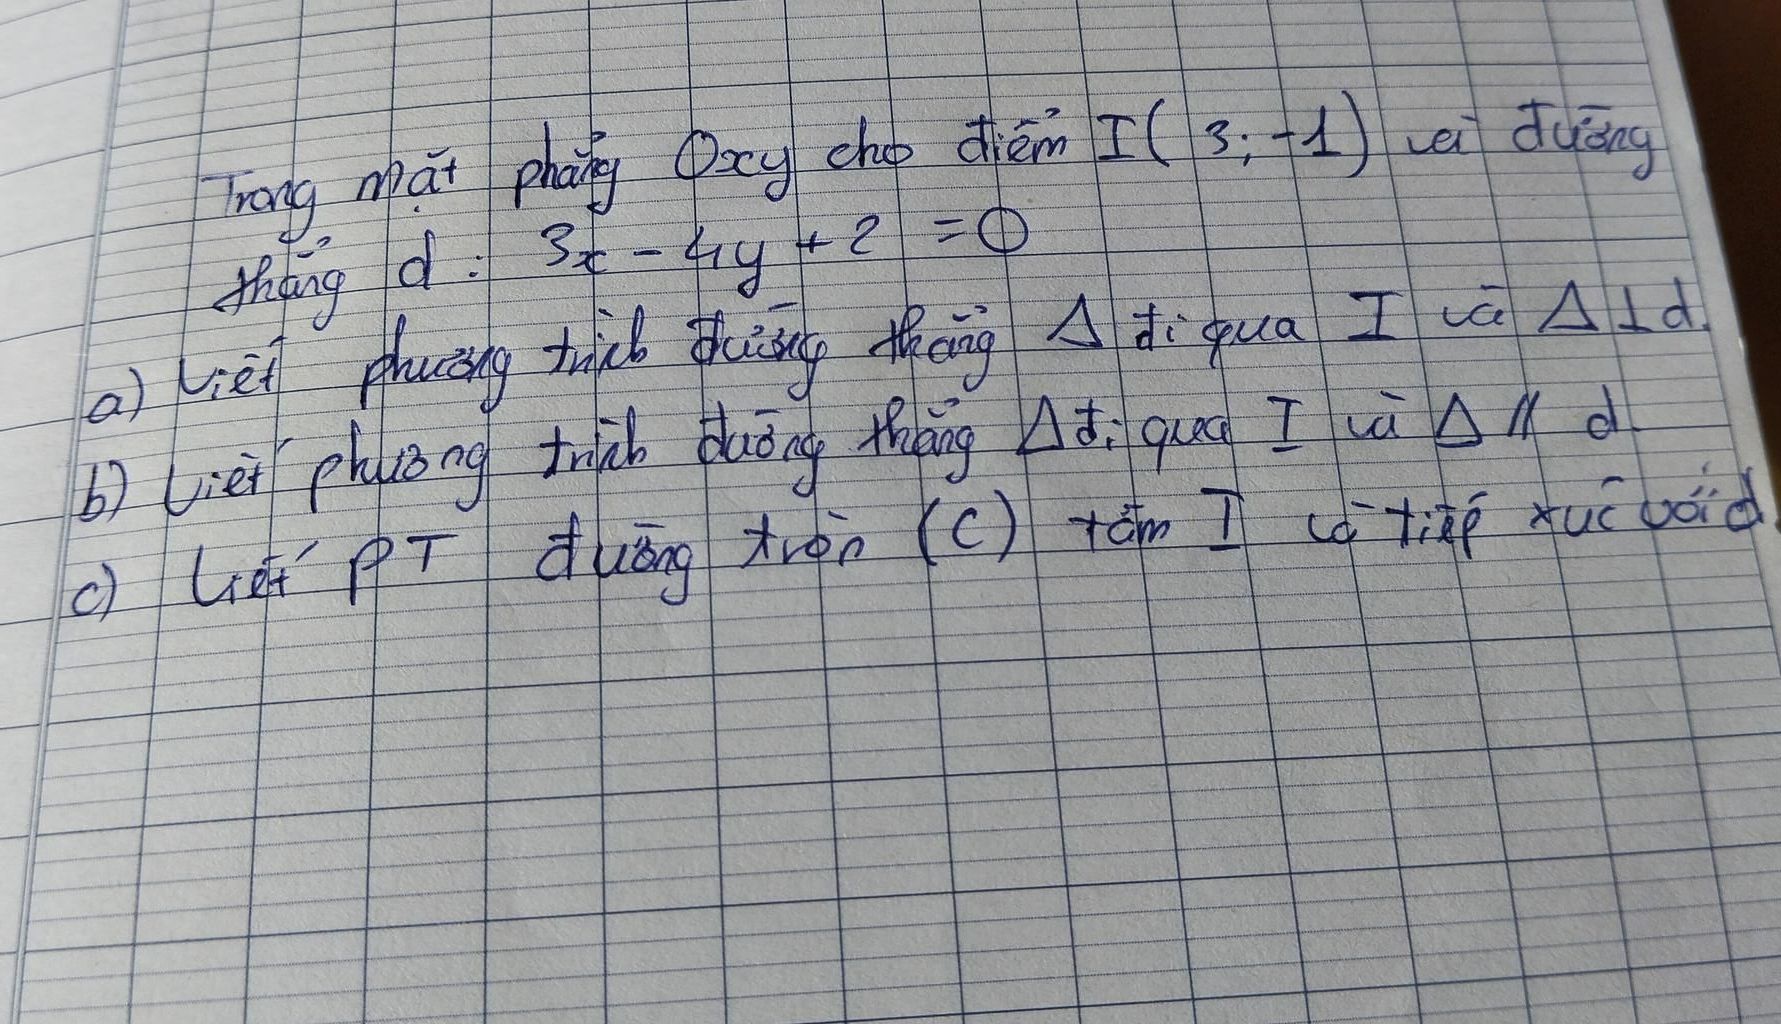 Trong mặt phẳng Oxy cho điểm I( 3; -1) và đường
thẳng d : 3x - 4y + 2 = 0
a) Viết phương trình đường thẳng Δ đi qua I và Δ ⊥ d.
b) Viết phương trình đường thẳng Δ đi qua I và Δ // d.
c) Viết PT đường tròn (C) tâm I và tiếp xúc với d